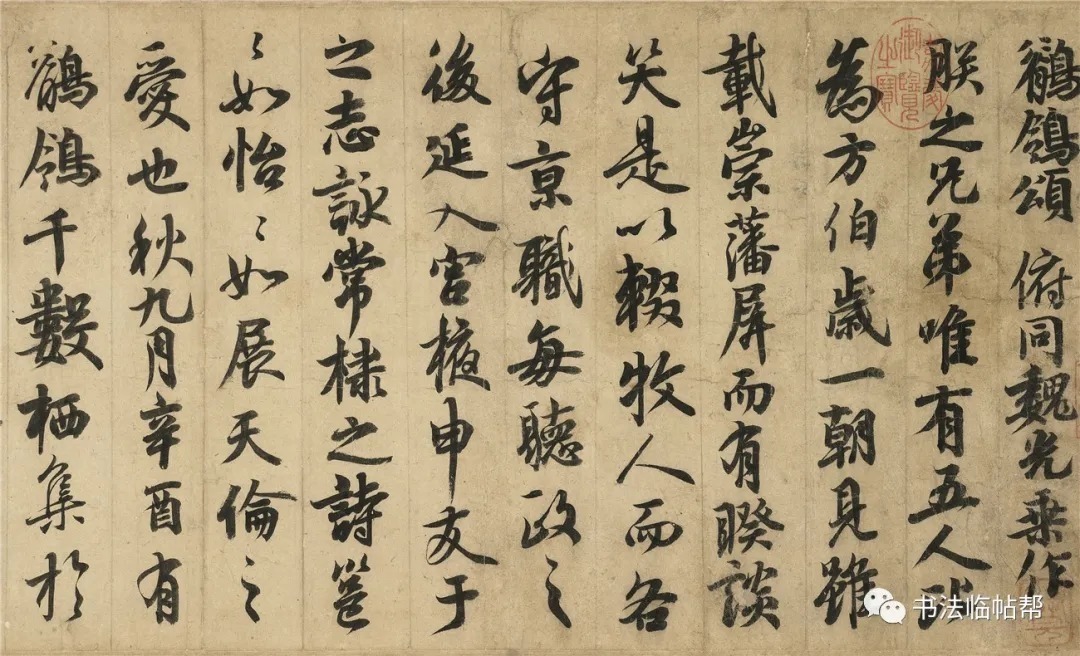 鶺鴒頌 俯同魏光乘作
朕之兄弟唯有五人比
為方伯歲一朝見雖
載崇藩屏而有睽談
笑是以輟牧人而各
守京職每聽政之
後延入宮掖申友于
之志詠常棣之詩邕
邕如怡怡如展天倫之
愛也秋九月辛酉有
鶺鴒千數栖集於
書法临帖帮